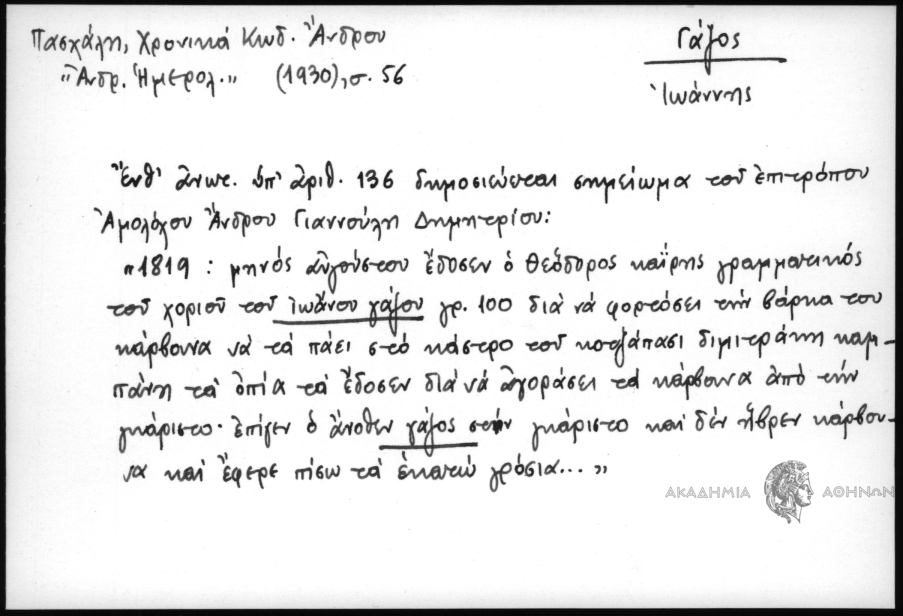 Πασχάλη, Χρονικά Κωδ. Ἄνδρου
"Ἀνδρ. Ἡμερολ." (1930), σ. 56
Γάζος
Ἰωάννης
Ἔνθ' ἀνωτ. ὑπ' ἀριθ. 136 δημοσιεύεται σημείωμα τοῦ ἐπιτρόπου
Ἀμολόχου Ἄνδρου Γιαννούλη Δημητρίου:
"1819 : μηνός αὐγούστου ἔδοσεν ὁ θεόδορος καΐρης γραμματικός
τοῦ χοριοῦ τοῦ ἰωάνου γάζου γρ. 100 διά νά φορτόσει τήν βάρκα του
κάρβουνα νά τά πάει στό κάστρο τοῦ κοτζάπασι διμιτράκη καμ-
πάνη τά ὁπία τά ἔδοσεν διά νά ἀγοράσει τά κάρβουνα ἀπό τήν
γκάριστο· ἐπίγεν ὁ ἄνοθεν γάζος στήν γκάριστο καί δέν ἦβρεν κάρβου-
να καί ἔφερε πίσω τά ἑκατό γρόσια..."
ΑΚΑΔΗΜΙΑ ΑΘΗΝΩΝ